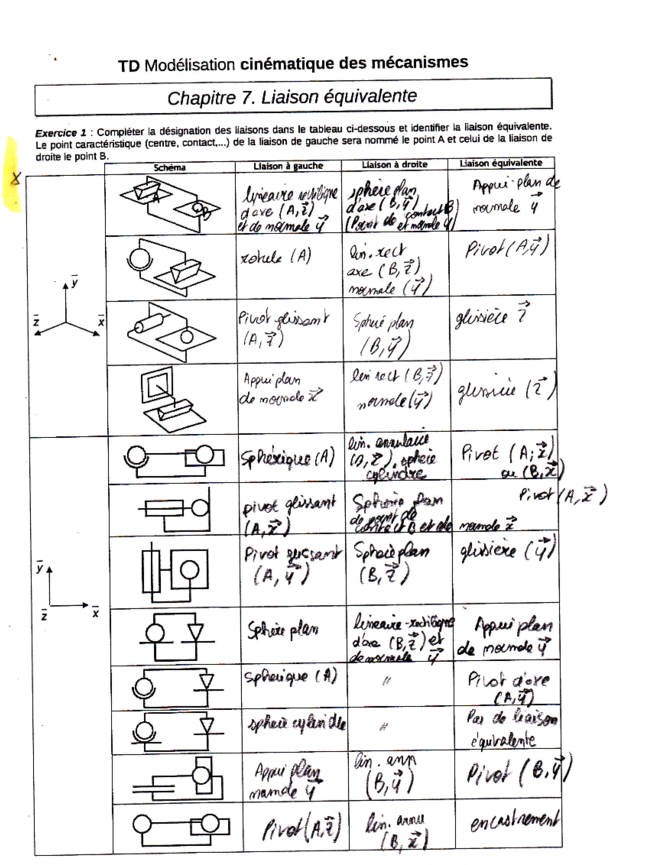 TD Modélisation cinématique des mécanismes
Chapitre 7. Liaison équivalente
Exercice 1 : Compléter la désignation des liaisons dans le tableau ci-dessous et identifier la liaison équivalente.
Le point caractéristique (centre, contact,...) de la liaison de gauche sera nommé le point A et celui de la liaison de
droite le point B.
Schéma Liaison à gauche Liaison à droite Liaison équivalente
A B
linéaire rectiligne
d'axe (A, z)
et de normale y
sphère plan
d'axe (B, y)
(Point de contact B)
et normale y
Appui-plan de
normale y
rotule (A)
lin. rect
axe (B, z)
normale (y)
Pivot (A, y)
y
z x
Pivot glissant
(A, z)
Sphère plan
(B, y)
glissière z
Appui plan
de normale x
lin rect (B, z)
normale (y)
glissière (z)
Sphérique (A)
lin. annulaire
, sphère
cylindre
Pivot (A; x)
ou (B, x)
pivot glissant
(A, x)
Sphère plan
de point de
contact B et de normale x
Pivot (A, x)
y
z x
Pivot glissant
(A, y)
Sphère plan
(B, z)
glissière (y)
Sphère plan
linéaire-rectiligne
d'axe (B, z) et
de normale y
Appui plan
de normale y
Sphérique (A)
"
Pivot d'axe
(A, y)
sphère cylindre
"
Pas de liaison
équivalente
Appui plan
normale y
lin. ann
(B, y)
Pivot (B, y)
Pivot (A, z)
lin. annu
(B, x)
encastrement